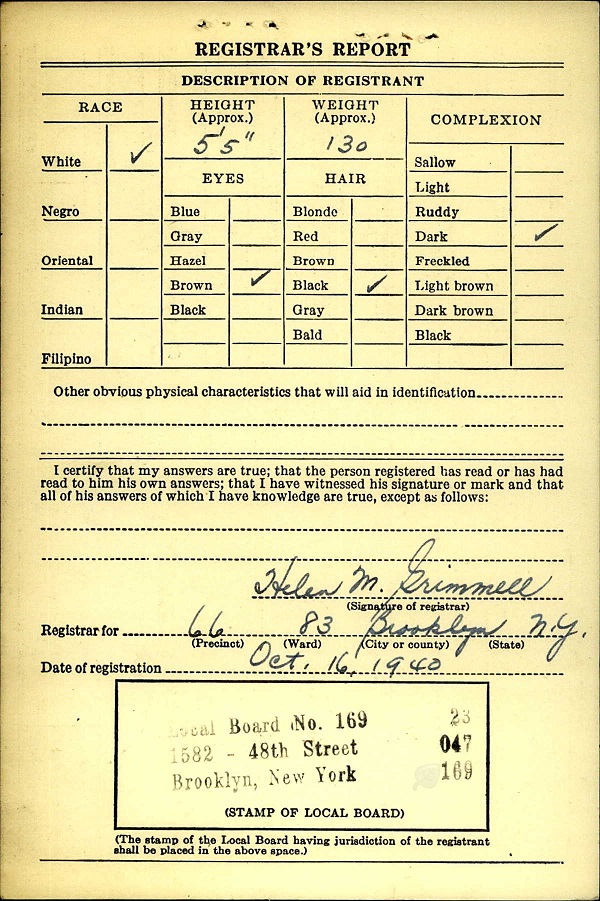 REGISTRAR'S REPORT
DESCRIPTION OF REGISTRANT
RACE
HEIGHT
(Approx.)
WEIGHT
(Approx.)
COMPLEXION
5'5"
130
White ✓
EYES
HAIR
Sallow
Light
Negro
Blue
Blonde
Ruddy
Gray
Red
Dark ✓
Oriental
Hazel
Brown
Freckled
Brown ✓
Black ✓
Light brown
Indian
Black
Gray
Dark brown
Bald
Black
Filipino
Other obvious physical characteristics that will aid in identification
I certify that my answers are true; that the person registered has read or has had
read to him his own answers; that I have witnessed his signature or mark and that
all of his answers of which I have knowledge are true, except as follows:
Helen M. Grimmell
(Signature of registrar)
Registrar for 66 83 Brooklyn N.Y.
(Precinct) (Ward) (City or county) (State)
Date of registration Oct. 16, 1940
Local Board No. 169 23
1582 - 48th Street 047
Brooklyn, New York 169
(STAMP OF LOCAL BOARD)
(The stamp of the Local Board having jurisdiction of the registrant
shall be placed in the above space.)